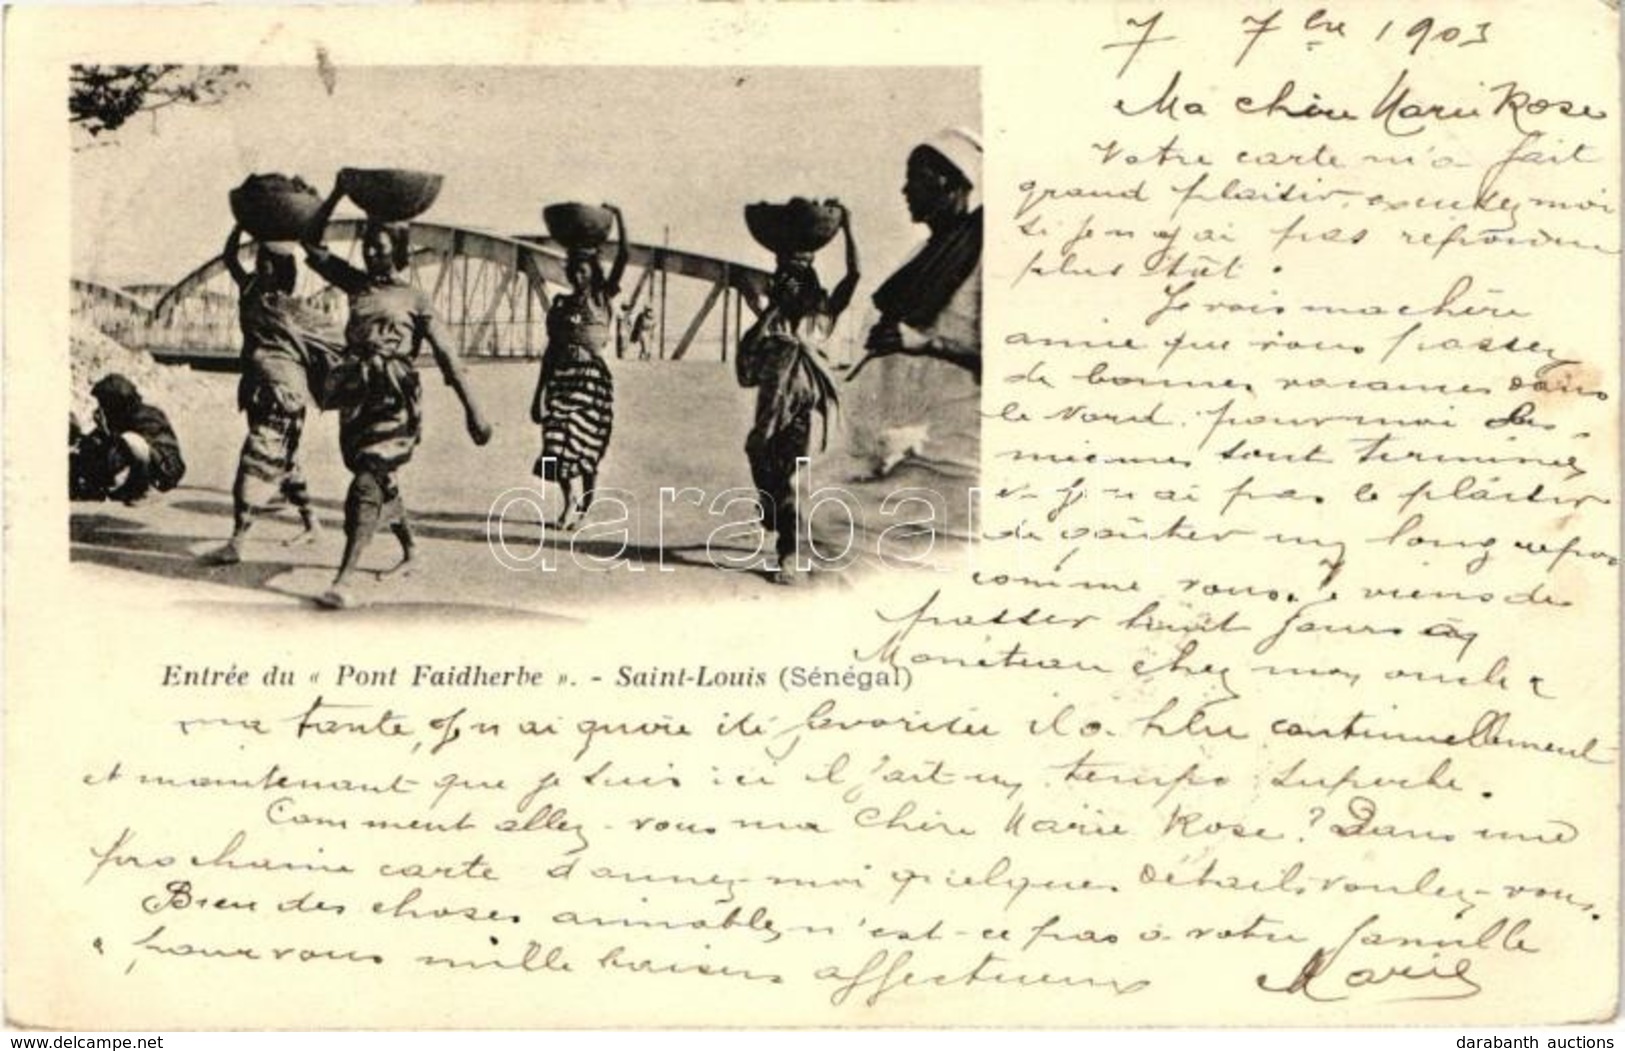 7 7bre 1903
Ma chère Marie Rose
Votre carte m'a fait
grand plaisir. excusez moi
si je n'y ai pas répondu
plus tôt.
Je vois ma chère
amie que vous passez
de bonnes vacances dans
le Nord. pour moi les
miennes sont terminées
je n'ai pas le plaisir
de goûter un long repos
comme vous. Je viens de
passer huit jours à
Monéteau chez mon oncle &
Entrée du « Pont Faidherbe ». - Saint-Louis (Sénégal)
ma tante, je n'ai guère été favorisée il a plu continuellement
et maintenant que je suis ici il fait un temps superbe.
Comment allez-vous ma chère Marie Rose? Dans une
prochaine carte donnez-moi quelques détails voulez-vous.
Bien des choses aimables n'est-ce pas à votre famille
& pour vous mille baisers affectueux Marie
darabanth
www.delcampe.net
darabanth auctions